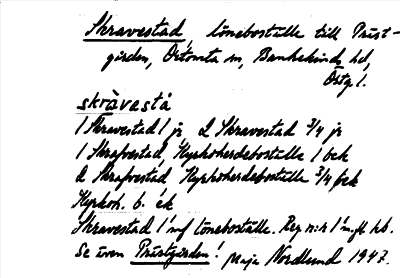 Skravestad, löneboställe till Präst-
gården, Örtomta sn, Bankekinds hd,
Östg l.
skrȧ̀vestȧ
1 Skravestad 1 jr, 2 Skravestad 3/4 jr
1 Skrafvestad, Kyrkoherdeboställe 1 bek
2 Skrafvestad Kyrkoherdeboställe 3/4 bek
Kyrkoh. b. ek
Skravestad 1 löneboställe. Reg n:r 1
Se även Prästgården! Maja Nordlund 1947.